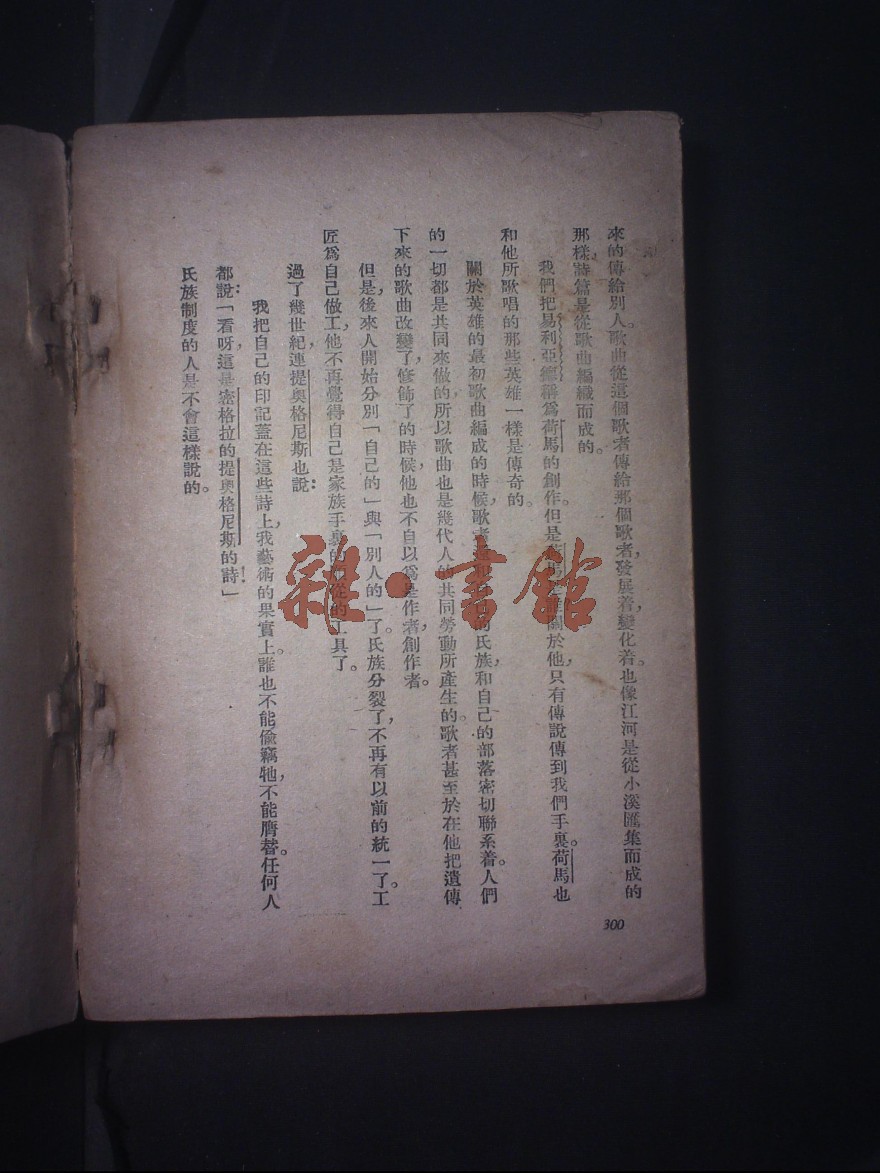 來的傳給別人。歌曲從這個歌者傳給那個歌者，發展着，變化着。也像江河是從小溪匯集而成的
那樣，詩篇是從歌曲編織而成的。
我們把易利亞德稱爲荷馬的創作。但是荷馬是誰？關於他，只有傳說傳到我們手裏。荷馬也
和他所歌唱的那些英雄一樣是傳奇的。
關於英雄的最初歌曲編成的時候，歌者還和自己的氏族和自己的部落密切聯系着。人們
的一切都是共同來做的，所以歌曲也是幾代人的共同勞動所產生的。歌者甚至於在他把遺傳
下來的歌曲改變了，修飾了的時候，他也不自以爲是作者，創作者。
但是，後來人開始分別「自己的」與「別人的」了。氏族分裂了，不再有以前的統一了。工
匠爲自己做工，他不再覺得自己是家族手裏的順從的工具了。
過了幾世紀，連提奧格尼斯也說：
我把自己的印記蓋在這些詩上，我藝術的果實上。誰也不能偷竊牠，不能膺替。任何人
都說：「看呀，這是密格拉的提奧格尼斯的詩！」
氏族制度的人是不會這樣說的。
300
雜·書館